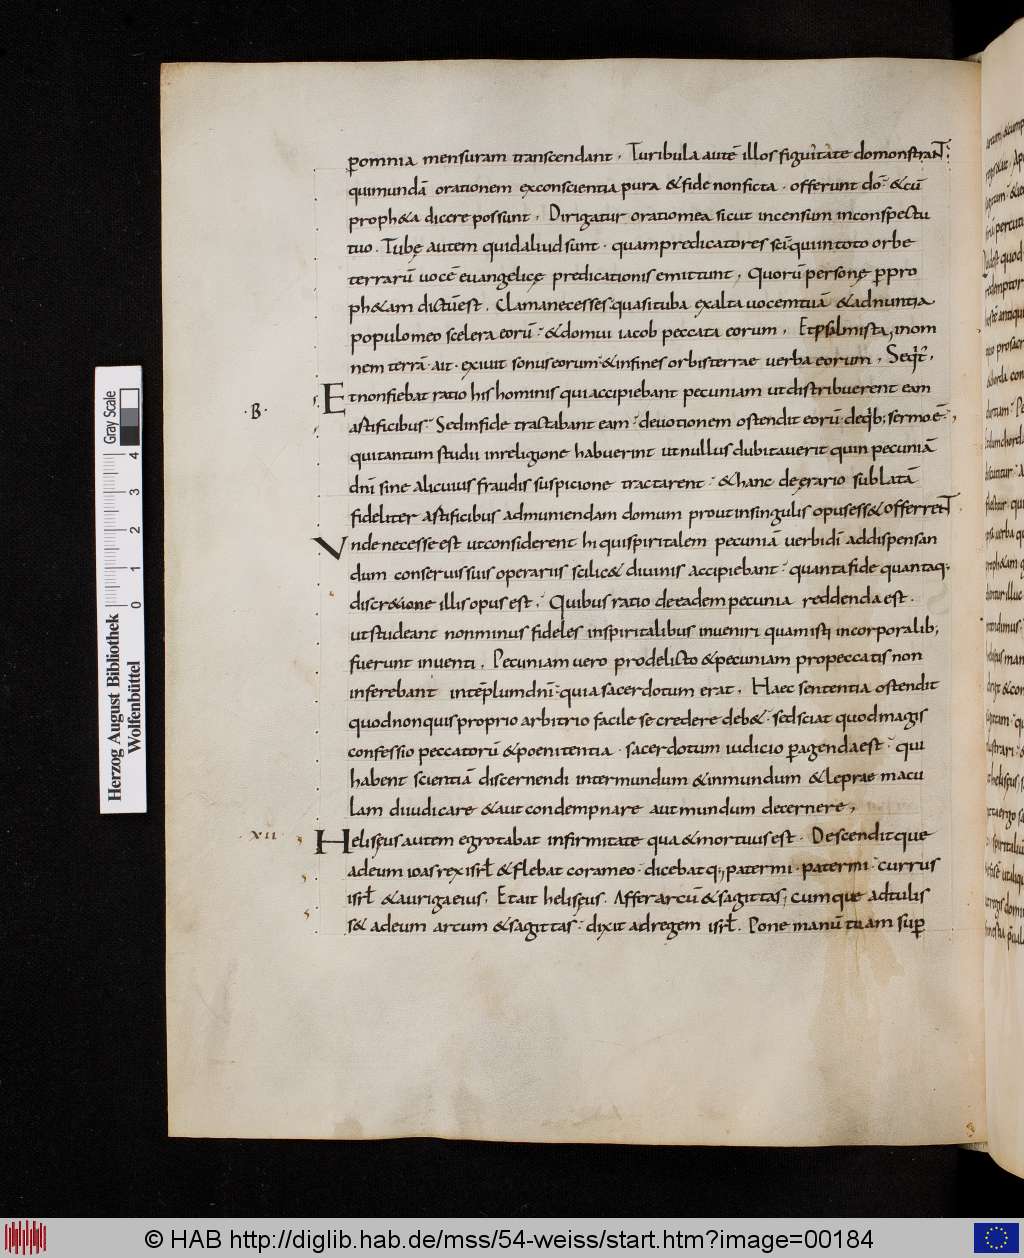 ꝑomnia mensuram transcendant . Turibula autē illos figuratate domonstrant
qui mundā orationem exconscientia pura & fide non ficta . offerunt dō : & cū
proph&a dicere possunt . Dirigatur oratio mea sicut incensum inconspectu
tuo . Tubę autem quid aliud sunt . quam predicatores sc̄i qui in toto orbe
terrarū uocē euangelicę predicationis emittunt , Quorū personę ꝑ pro
ph&am dictū est . Clama ne cesses quasi tuba exalta uocem tuā & adnuntia
populo meo scelera eorū : & domui iacob peccata eorum , Et psalmista , in om
nem terrā . ait . exiuit sonus eorum : & in fines orbis terrae uerba eorum , Seqt̄ ,
Et non fiebat ratio his hominis qui accipiebant pecuniam ut distribuerent eam
astificibus : Sed in fide tractabant eam : deuotionem ostendit eorū de qb; sermo ē ,
qui tantum studii in religione habuerint ut nullus dubitauerit quin pecuniā
dn̄i sine alicuius fraudis suspicione tractarent : & hanc de ęrario sublatā
fideliter astificibus ad muniendam domum prout in singulis opus ess& offerrent
Vnde necesse est ut considerent hi qui spiritalem pecuniā uerbi dī ad dispensan
dum conseruis suis operariis scilic& diuinis accipiebant : quanta fide quantaq;
discr&ione illis opus est , Quibus ratio de eadem pecunia reddenda est .
ut studeant non minus fideles in spiritalibus inueniri quam isti in corporalib;
fuerunt inuenti . Pecuniam uero pro delicto & pecuniam pro peccatis non
inferebant in tēplum dn̄i : quia sacerdotum erat . Haec sententia ostendit
quod non quis proprio arbitrio facile se credere deb& : sed sciat quod magis
confessio peccatorū & poenitentia . sacerdotum iudicio ꝑagenda est : qui
habent scientiā discernendi inter mundum & inmundum & leprae macu
lam diiudicare & aut condempnare aut mundum decernere ,
Helisęus autem egrotabat infirmitate qua & mortuus est . Descenditque
ad eum ioas rex isrł & flebat coram eo . dicebatq; , pater mi . pater mi : currus
isrł & auriga eius . Et ait helisęus . Affer arcū & sagittas ; cumque adtulis
s& ad eum arcum & sagittas : dixit ad regem isrł . Pone manū tuam suꝑ
. B .
XII
Gray Scale
0 1 2 3 4
Herzog August Bibliothek
Wolfenbüttel
© HAB http://diglib.hab.de/mss/54-weiss/start.htm?image=00184